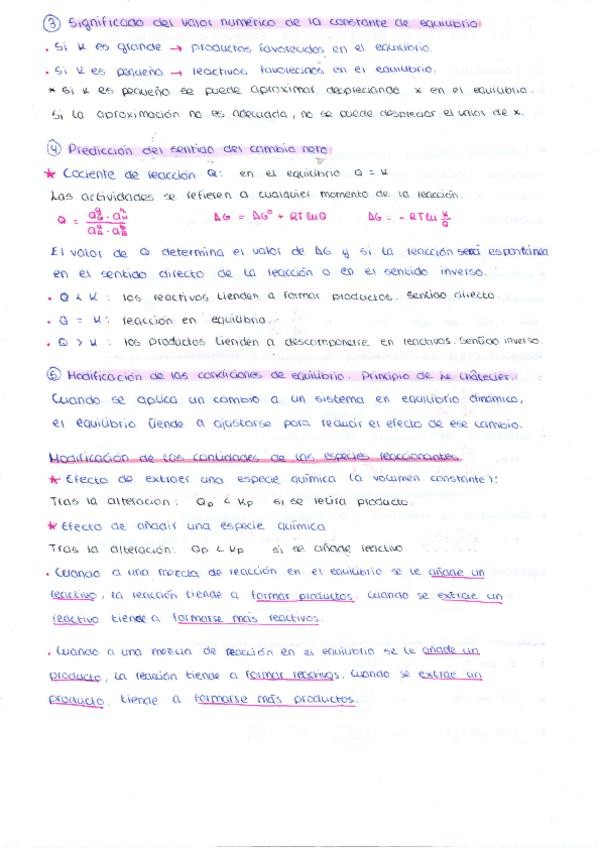 ③ Significado del valor numérico de la constante de equilibrio
• Si K es grande → productos favorecidos en el equilibrio.
• Si K es pequeño → reactivos favorecidos en el equilibrio.
* Si K es pequeño se puede aproximar despreciando x en el equilibrio.
Si la aproximación no es adecuada, no se puede despreciar el valor de x.
④ Predicción del sentido del cambio neto:
* Cociente de reacción Q: en el equilibrio Q = K
Las actividades se refieren a cualquier momento de la reacción.
Q = a_G^g · a_H^h / a_A^a · a_B^b    ΔG = ΔG° + RT ln Q    ΔG = - RT ln K/Q
El valor de Q determina el valor de ΔG y si la reacción será espontánea
en el sentido directo de la reacción o en el sentido inverso.
• Q < K: los reactivos tienden a formar productos. Sentido directo.
• Q = K: reacción en equilibrio.
• Q > K: los productos tienden a descomponerse en reactivos. Sentido inverso.
⑤ Modificación de las condiciones de equilibrio. Principio de Le Châtelier:
Cuando se aplica un cambio a un sistema en equilibrio dinámico,
el equilibrio tiende a ajustarse para reducir el efecto de ese cambio.
Modificación de las cantidades de las especies reaccionantes
* Efecto de extraer una especie química (a volumen constante):
Tras la alteración: Qp < Kp si se retira producto.
* Efecto de añadir una especie química
Tras la alteración: Qp < Kp si se añade reactivo
• Cuando a una mezcla de reacción en el equilibrio se le añade un
reactivo, la reacción tiende a formar productos. Cuando se extrae un
reactivo tiende a formarse más reactivos.
• Cuando a una mezcla de reacción en el equilibrio se le añade un
producto, la reacción tiende a formar reactivos. Cuando se extrae un
producto, tiende a formarse más productos.